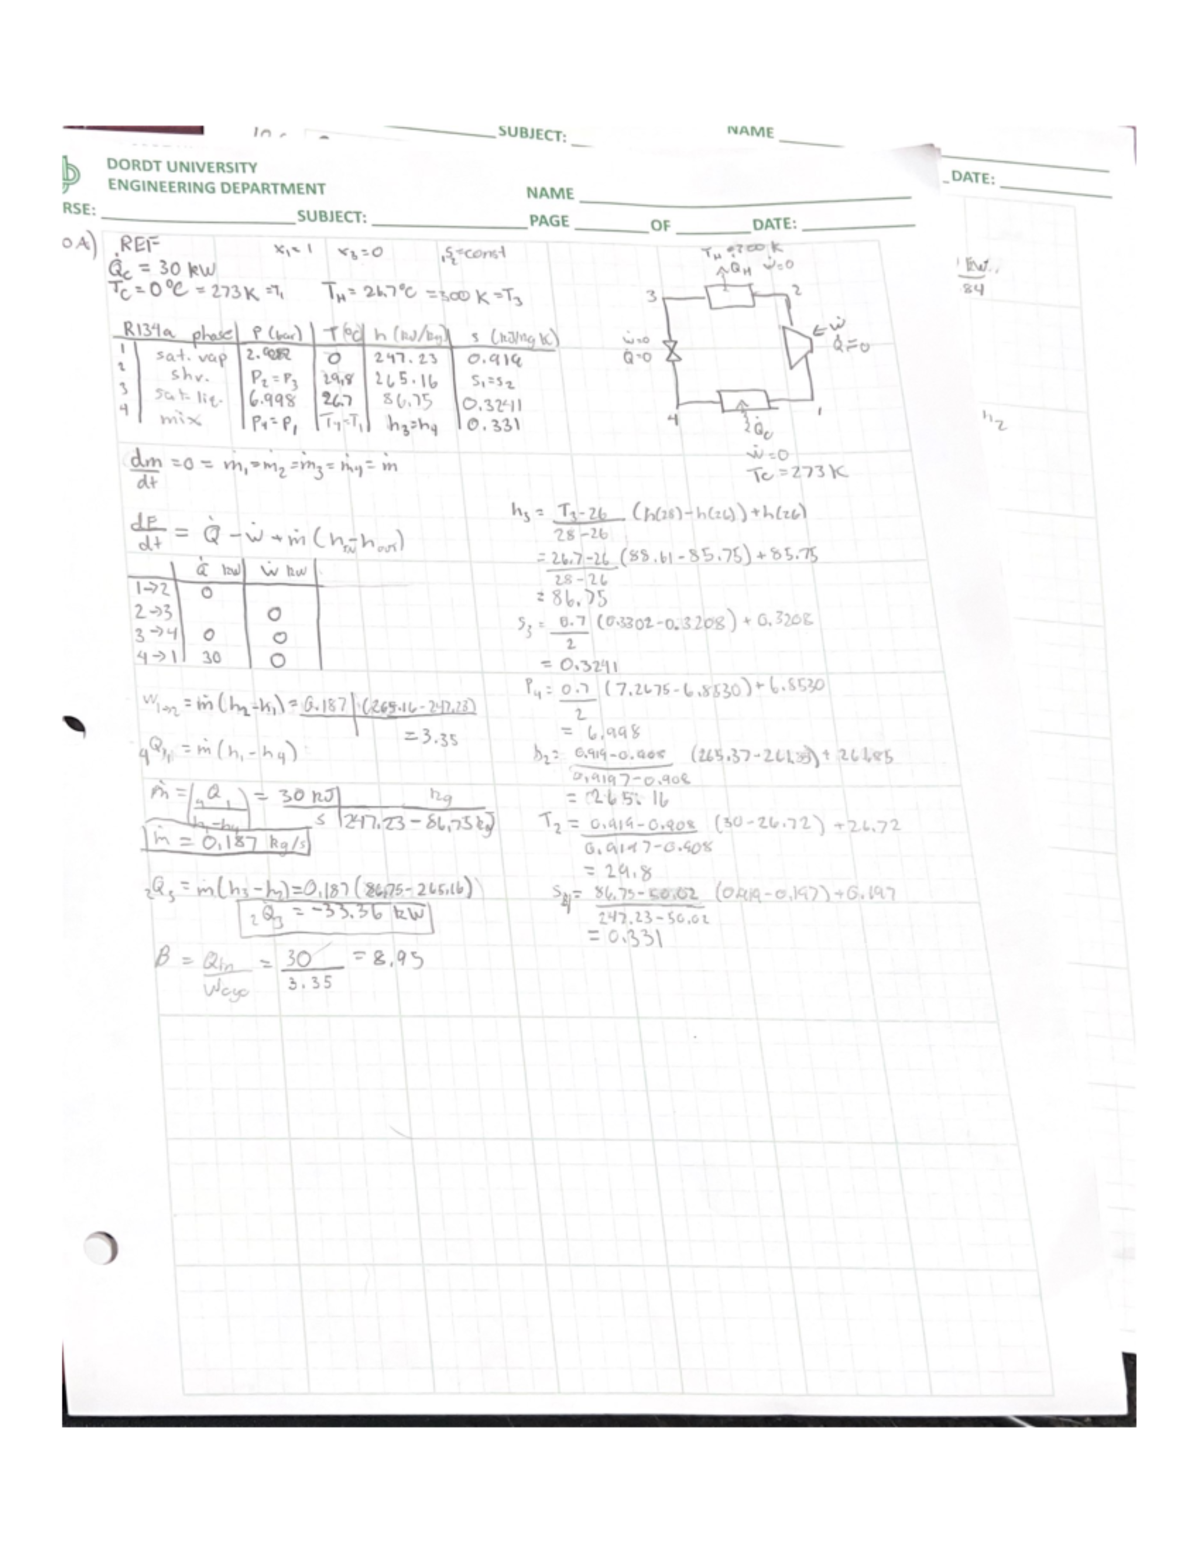 SUBJECT:
NAME
DORDT UNIVERSITY
ENGINEERING DEPARTMENT
NAME
DATE:
RSE:
SUBJECT:
PAGE
OF
DATE:
0A) REF x₁=1 x₃=0 ₁s₂=const
Q̇c = 30 kW
Tc = 0°C = 273K = T₁ TH = 26.7°C = 300 K = T₃
R134a phase P (bar) T(°C) h (kJ/kg) s (kJ/kg K)
1 sat. vap 0 247.23 0.919
2 shv. P₂=P₃ 29.8 265.16 s₁=s₂
3 sat liq. 6.998 26.7 86.75 0.3241
4 mix P₄=P₁ T₄=T₁ h₃=h₄ 0.331
TH = 300 K
QH ẇ=0
3 2
ẇ=0
Q̇=0
ẇ
Q̇=0
4 1
Q̇c
ẇ=0
Tc = 273K
84
h₂
dm/dt = 0 = ṁ₁=ṁ₂=ṁ₃=ṁ₄=ṁ
dE/dt = Q̇ - ẇ + ṁ(hIN - hOUT)
Q̇ kW ẇ kW
1→2 0
2→3 0
3→4 0 0
4→1 30 0
W₁→₂ = ṁ(h₂-h₁) = 0.187 (265.16-247.23)
= 3.35
₄Q̇₁ = ṁ(h₁-h₄)
ṁ = ₄Q̇₁/h₁-h₄ = 30 kJ/s kg/247.23-86.75 kJ
ṁ = 0.187 kg/s
₂Q̇₃ = ṁ(h₃-h₂) = 0.187(86.75-265.16)
₂Q̇₃ = -33.36 kW
β = Qin/Wcyc = 30/3.35 = 8.95
h₃ = T₃-26/28-26 (h(28)-h(26)) + h(26)
= 26.7-26/28-26 (88.61-85.75) + 85.75
= 86.75
s₃ = 0.7/2 (0.3302-0.3208) + 0.3208
= 0.3241
P₄ = 0.7/2 (7.2675-6.8530) + 6.8530
= 6.998
h₂ = 0.919-0.908/0.9197-0.908 (265.37-261.85) + 261.85
= 265.16
T₂ = 0.919-0.908/0.9197-0.908 (30-26.72) + 26.72
= 29.8
s₄ = 86.75-50.02/247.23-50.02 (0.919-0.197) + 0.197
= 0.331